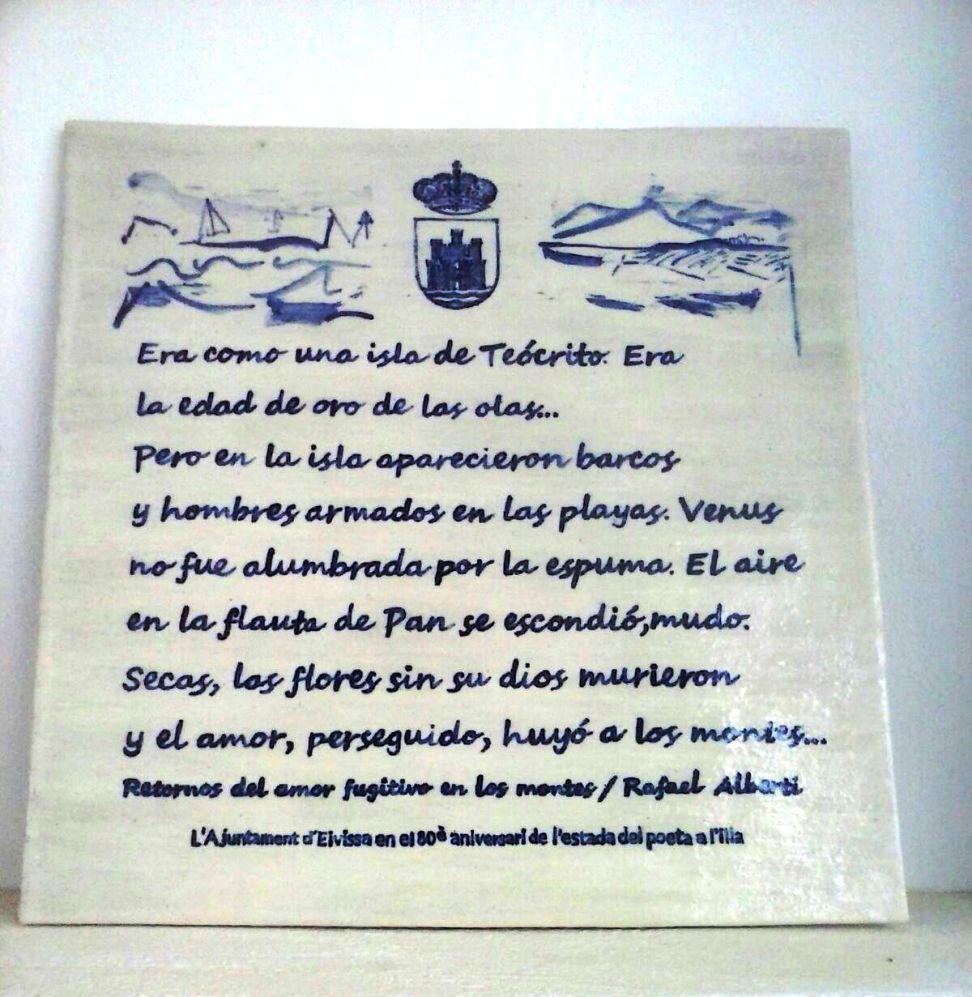 Era como una isla de Teócrito. Era
la edad de oro de las olas...
Pero en la isla aparecieron barcos
y hombres armados en las playas. Venus
no fue alumbrada por la espuma. El aire
en la flauta de Pan se escondió,mudo.
Secas, las flores sin su dios murieron
y el amor, perseguido, huyó a los montes...
Retornos del amor fugitivo en los montes / Rafael Alberti
L'Ajuntament d'Eivissa en el 80è aniversari de l'estada del poeta a l'illa